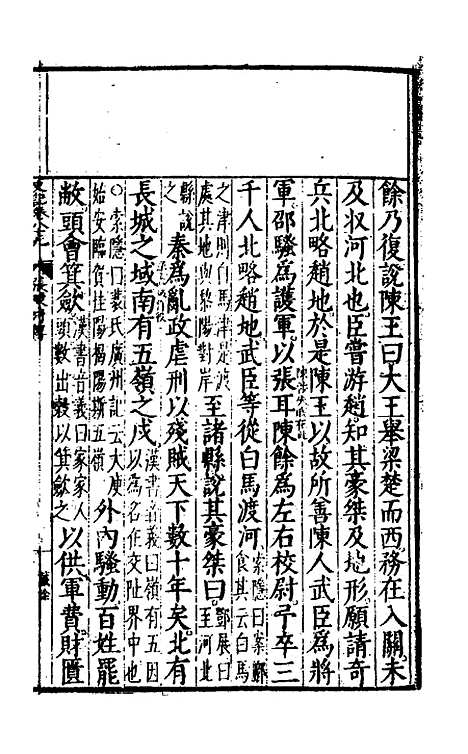 餘乃復說陳王曰大王舉梁楚而西務在入關未
及收河北也臣嘗游趙知其豪桀及地形願請奇
兵北略趙地於是陳王以故所善陳人武臣爲將
軍邵騷爲護軍以張耳陳餘爲左右校尉予卒三
千人北略趙地武臣等從白馬渡河索隱曰案酈食其云白馬
之津則白馬津是渡處其地與黎陽對岸至諸縣說其豪桀曰鄧展曰至河
縣說之秦爲亂政虐刑以殘賊天下數十年矣北有
長城之域南有五嶺之戍漢書音義曰嶺有五因以爲名在交阯界中也
○索隱曰裴氏廣州記云大庾始安臨賀桂陽揭陽斯五嶺外內騷動百姓罷
敝頭會箕歛漢書音義曰家家人頭數出穀以箕歛之以供軍費財匱